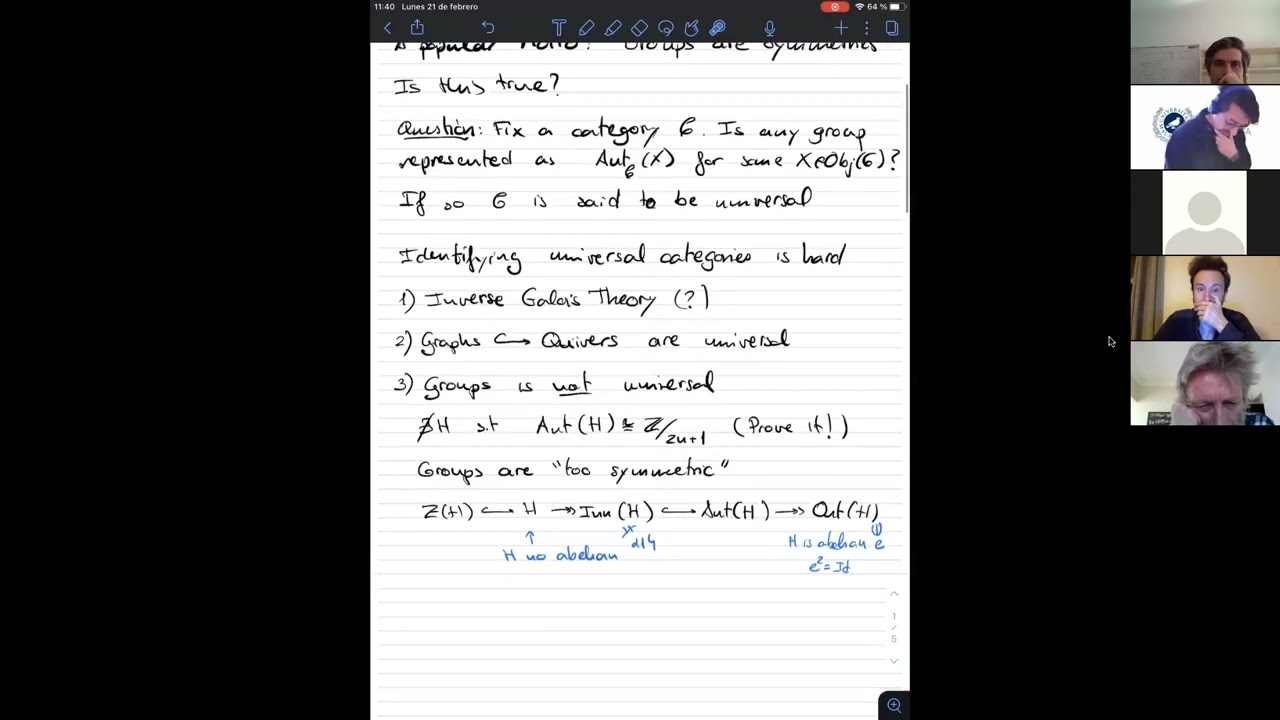 11:40 Lunes 21 de febrero 64 %
A popular motto: Groups are symmetries
Is this true?
Question: Fix a category C. Is any group
represented as Aut_C(X) for some X∈Obj(C)?
If so C is said to be universal
Identifying universal categories is hard
1) Inverse Galois Theory (?)
2) Graphs ↪ Quivers are universal
3) Groups is not universal
∄H s.t Aut(H) ≅ Z/2n+1 (Prove it!)
Groups are "too symmetric"
Z(H) ↪ H ↠ Inn(H) ↪ Aut(H) ↠ Out(H)
↑
H no abelian
H is abelian e
e² = Id
1
/
5